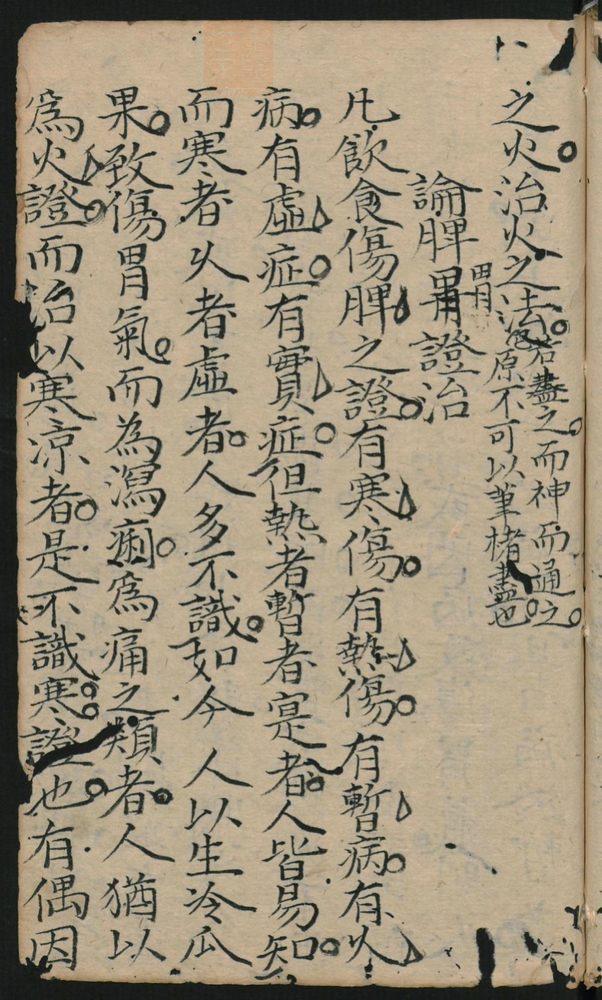 之火治火之法
若盡之而神而通之
原不可以筆楮盡也
論脾胃證治
胃
凡飲食傷脾之證有寒傷有熱傷有暫病有久
病有虛症有實症但熱者暫者寔者人皆易知
而寒者久者虛者人多不識如今人以生冷瓜
果致傷胃氣而為瀉痢為痛之類者人猶以
為火證而治以寒凉者是不識寒證也有偶因